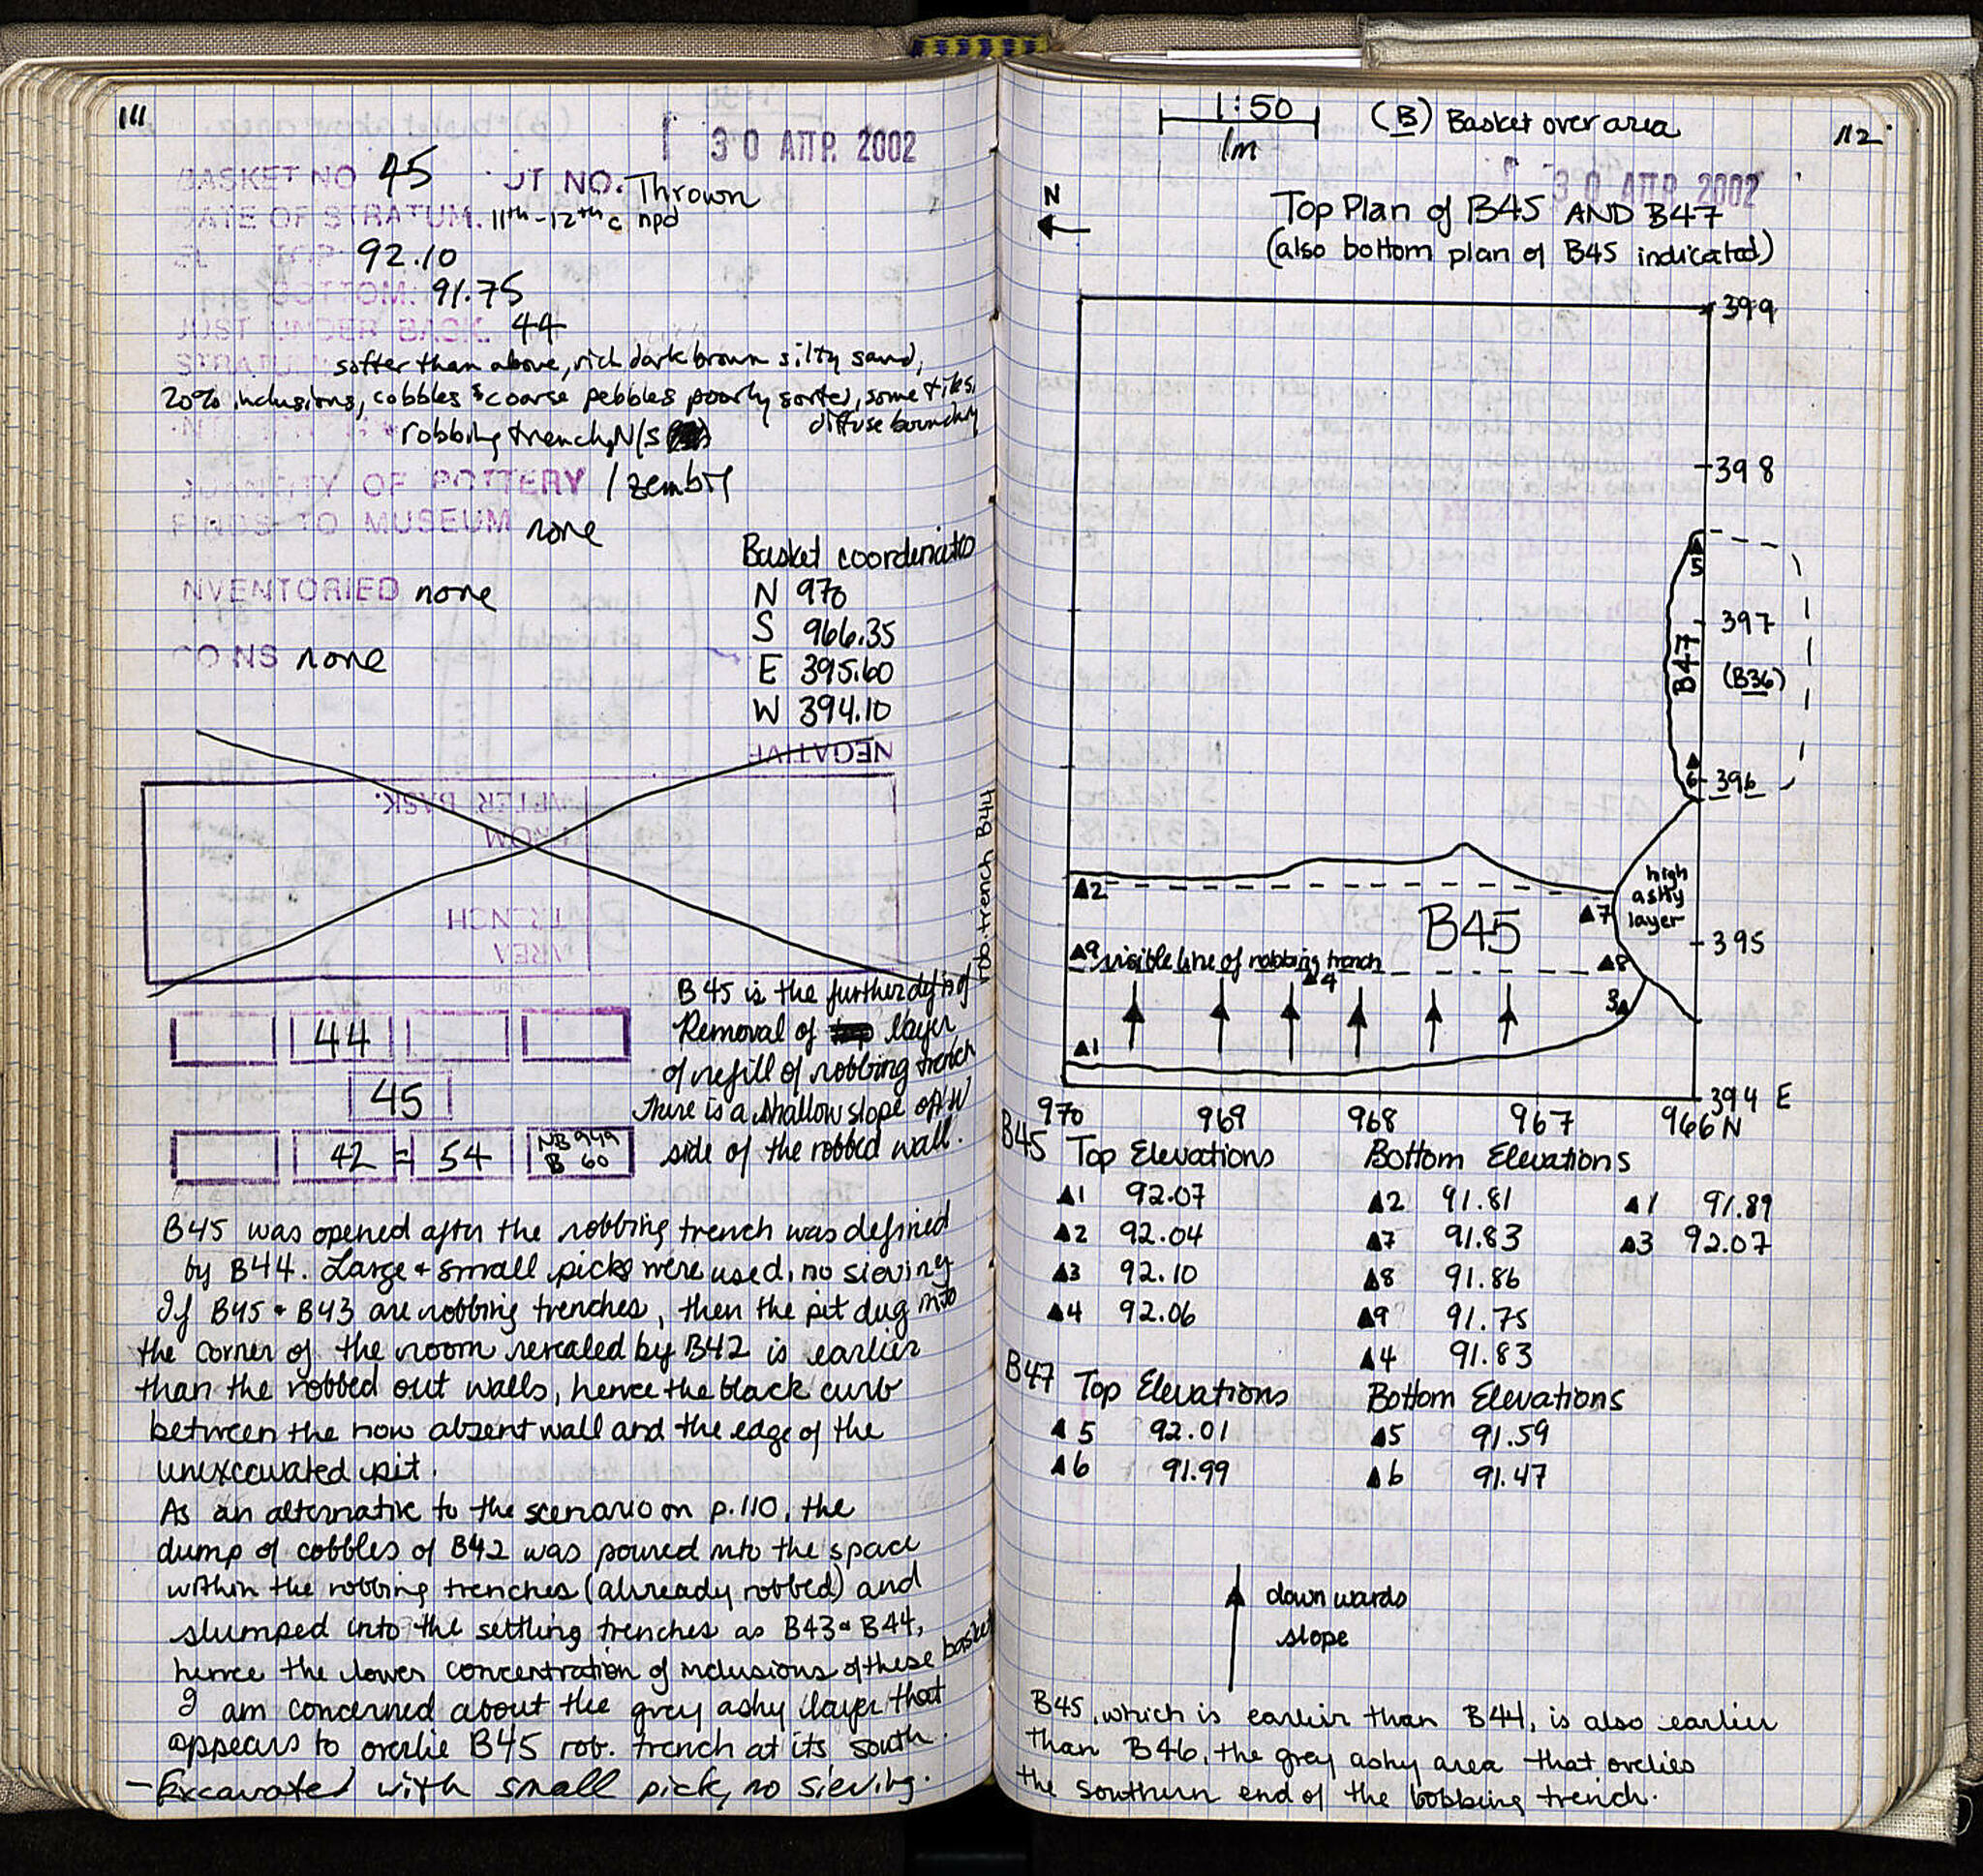 111
30 ΑΠΡ. 2002
BASKET NO 45 JT NO. Thrown
DATE OF STRATUM. 11th-12th c npd
TOP 92.10
BOTTOM: 91.75
JUST UNDER BASK. 44
STRATUM: softer than above, rich dark brown silty sand,
20% inclusions, cobbles & coarse pebbles poorly sorted, some tiles,
diffuse boundary
robbing trench, N/S
QUANTITY OF POTTERY 1 zembil
FINDS TO MUSEUM none
Basket coordinates
N 970
S 966.35
E 395.60
W 394.10
NVENTORIED none
OINS none
NEGATIVE
METER BASK.
ROM
TRENCH
AREA
rob. trench B44
44
45
42 = 54 NB 949 B 60
B45 is the further def'n of
Removal of layer
of refill of robbing trench
There is a shallow slope off W
side of the robbed wall.
B45 was opened after the robbing trench was defined
by B44. Large + small picks were used, no sieving
If B45 + B43 are robbing trenches, then the pit dug into
the corner of the room revealed by B42 is earlier
than the robbed out walls, hence the black curb
between the now absent wall and the edge of the
unexcavated pit.
As an alternative to the scenario on p.110, the
dump of cobbles of B42 was poured into the space
within the robbing trenches (already robbed) and
slumped into the settling trenches as B43 & B44,
hence the lower concentration of inclusions of these basket
I am concerned about the grey ashy layer that
appears to overlie B45 rob. trench at its south.
- Excavated with small pick, no sieving.
1:50
1m
(B) Basket over area
112
30 ΑΠΡ 2002
N
Top Plan of B45 AND B47
(also bottom plan of B45 indicated)
399
398
▲5
397
B47
(B36)
▲6
396
high
ashy
layer
▲2
▲7
B45
395
▲9 visible line of robbing trench
▲8
▲4
3▲
▲1
394 E
970 969 968 967 966 N
B45 Top Elevations Bottom Elevations
▲1 92.07 ▲2 91.81 ▲1 91.89
▲2 92.04 ▲7 91.83 ▲3 92.07
▲3 92.10 ▲8 91.86
▲4 92.06 ▲9 91.75
▲4 91.83
B47 Top Elevations Bottom Elevations
▲5 92.01 ▲5 91.59
▲6 91.99 ▲6 91.47
down wards
slope
B45, which is earlier than B44, is also earlier
than B46, the grey ashy area that overlies
the southern end of the bobbing trench.